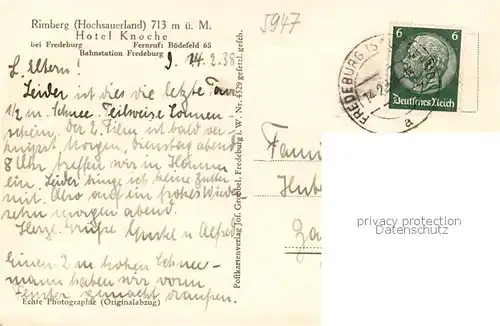 Rimberg (Hochsauerland) 713 m ü. M.
Hotel Knoche
bei Fredeburg Fernruf: Bödefeld 65
Bahnstation Fredeburg
14.2.38
5947
L. Eltern!
Leider ist dies die letzte Tour
1/2 m Schnee. Teilweise Sonnen
schein. Der 2. Film ist bald ver-
knipst. Morgen, dienstag abend
8 Uhr treffen wir in Hamm
ein. Leider bringe ich keine Butter
mit. Also auf ein frohes Wieder
sehn morgen abend.
Herzl. Grüße Gustel u. Alfred
Einen 2 m hohen Schnee-
mann haben wir vorm
Fenster gemacht draußen.
Echte Photographie (Originalabzug)
Postkartenverlag Jos. Grobbel, Fredeburg i. W. Nr. 4529 gesetzl. gesch.
FREDEBURG
14.2.
a
6 6
Deutsches Reich
Fami
privacy protection
DDDDDDDDDDDDDDDD